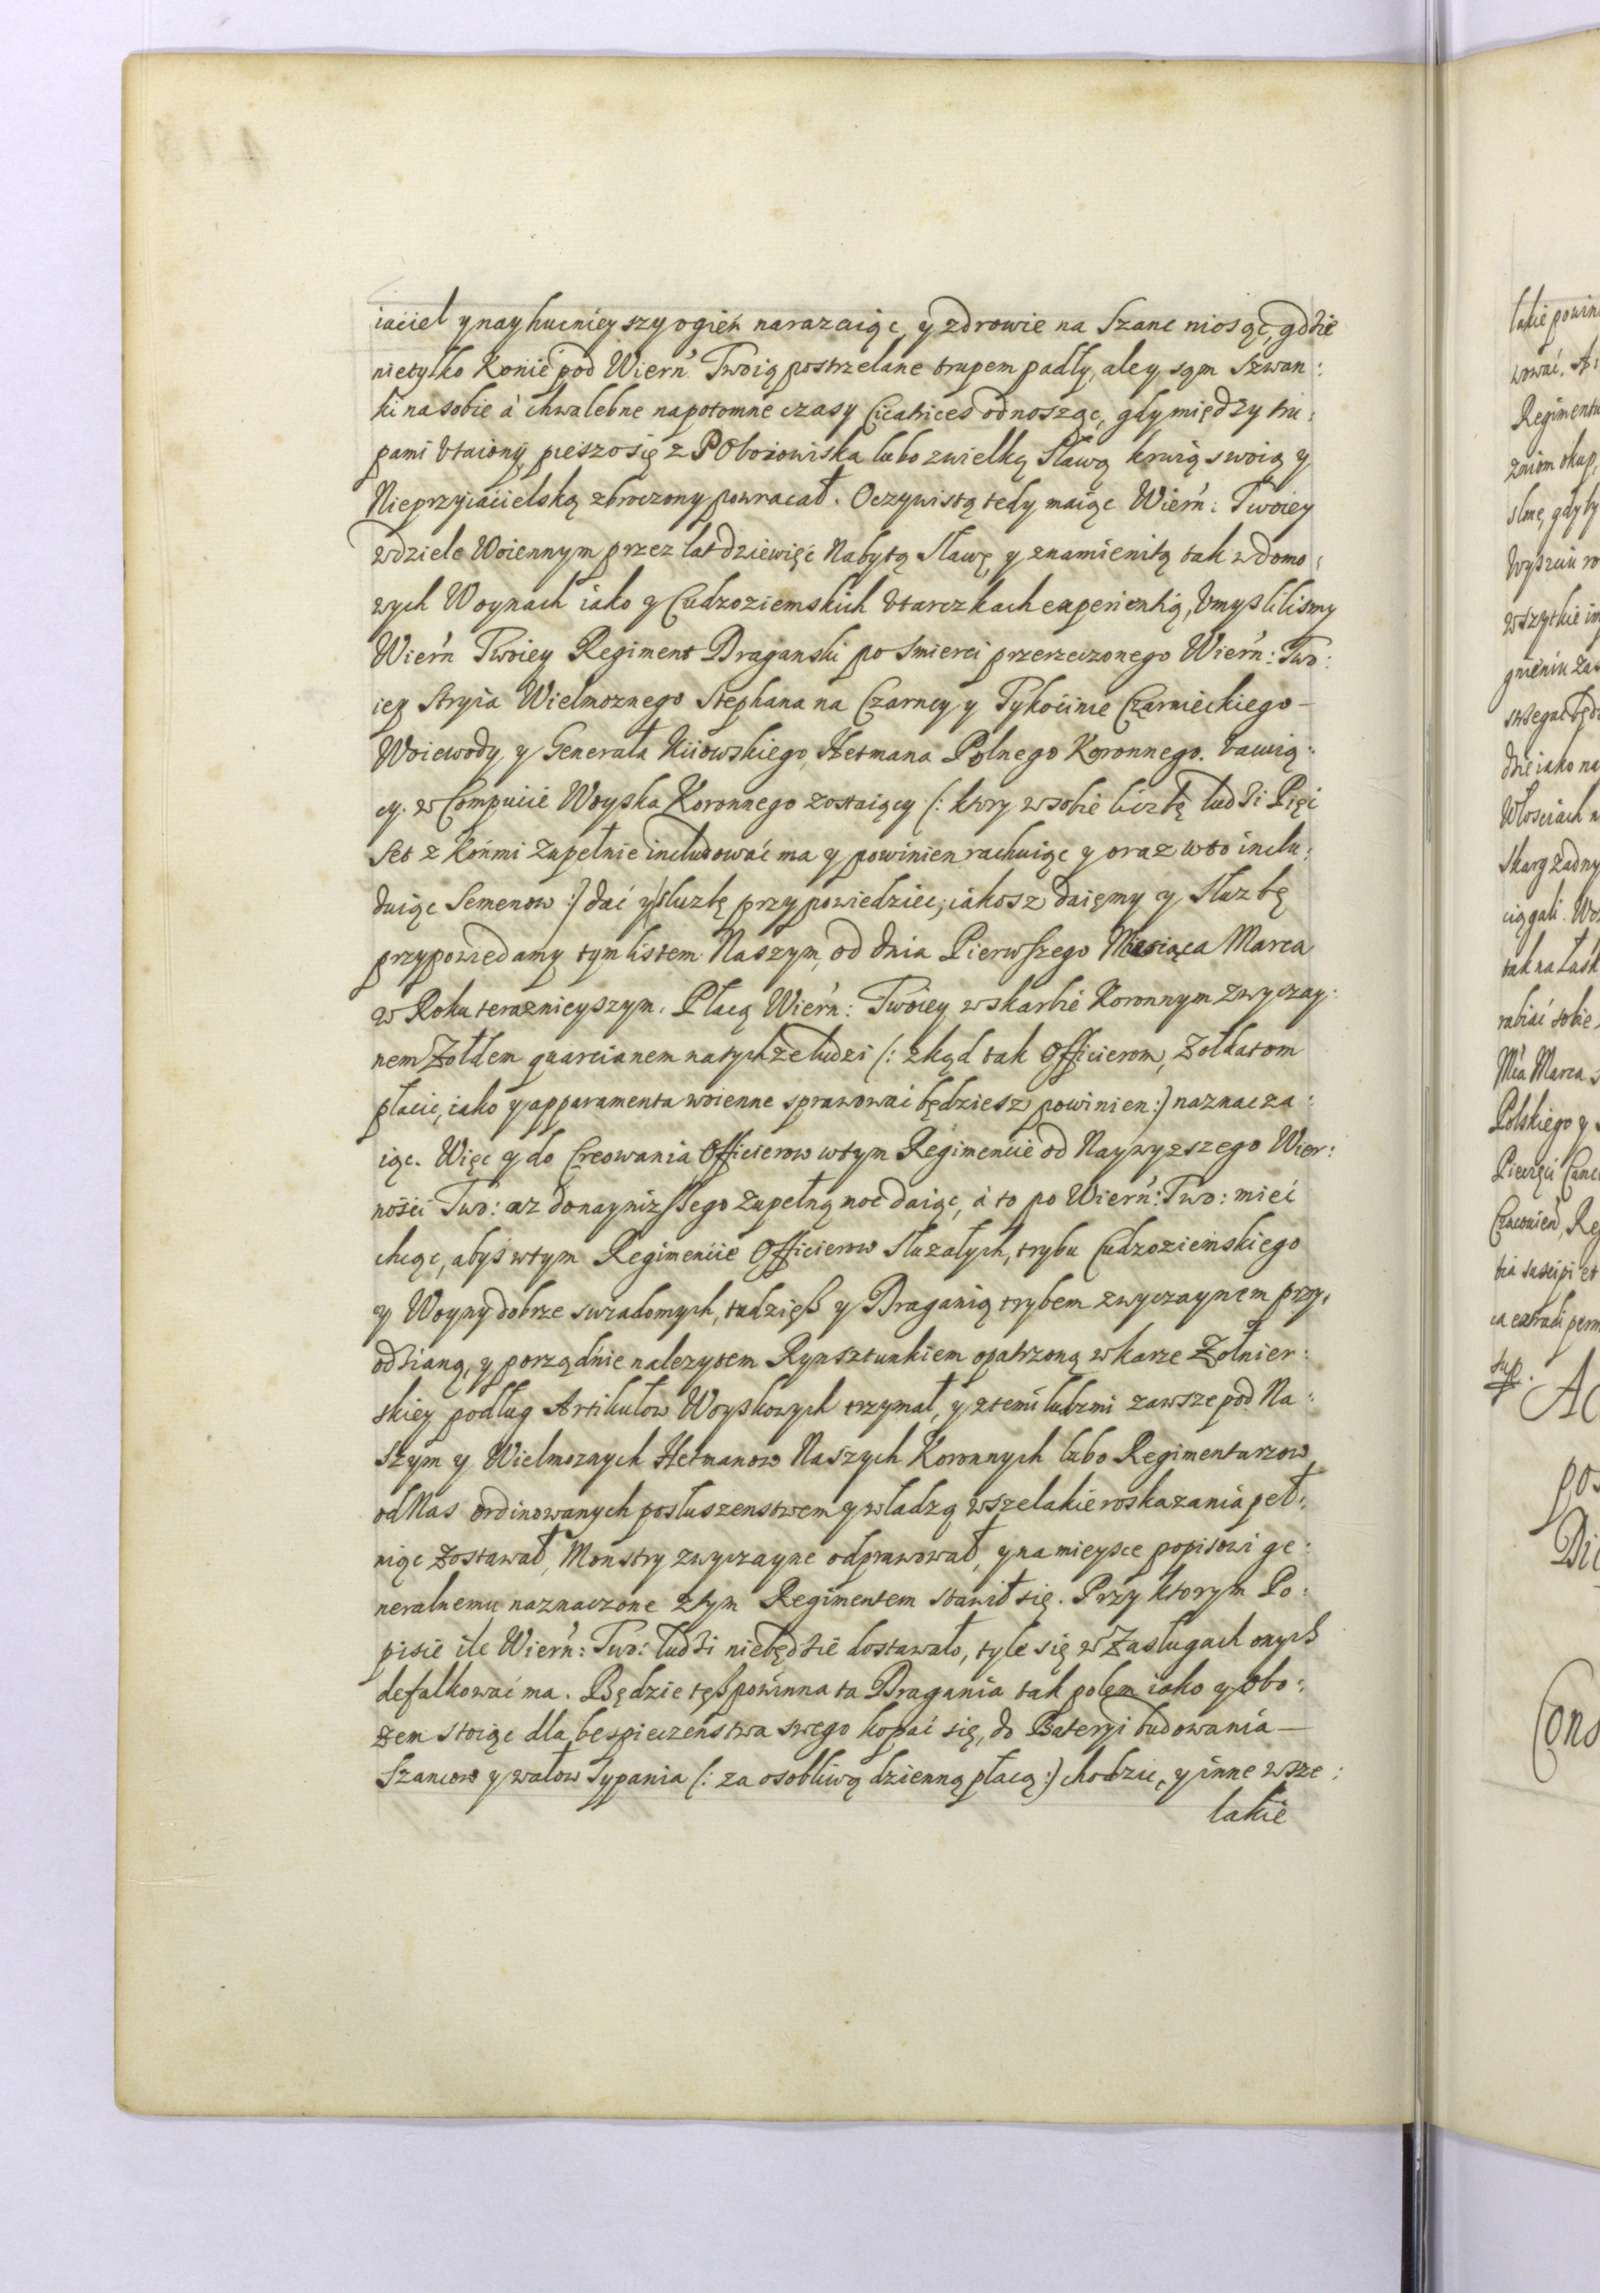 iaciel y nayhucnieyszy ogień narazaiąc, y zdrowie na Szanc niosąc, gdzie
nietylko Konie pod Wiern: Twoią postrzelane trupem padły, ale y sąm szwan:
ki na sobie à chwalebne napotomne czasy Cicatrices odnosząc, gdy między tru:
pami Vtaiony pieszo się z PObozowiska lubo zwielką Sławą krwią swoią y
Nieprzyiacielską zbroczony powracał. Oczywistą tedy maiąc Wiern: Twoiey
wdziele Woiennym przez lat dziewięć Nabytą Sławę y znamienitą tak wdomo:
wych Woynach iako y Cudzoziemskich Vtarczkach experientią, Vmyslilismy
Wiern Twoiey Regiment Draganski po smierci przerzeczonego Wiern: Two:
iey Stryia Wielmoznego Stephana na Czarney y Tykocinie Czarnieckiego
Woiewody y Generała Kiiowskiego, Hetmana Polnego Koronnego. bawią:
cy. w Compucie Woyska Koronnego zostaiący (: ktory wsobie liczbę ludzi Pięć
Set z Końmi zupełnie includować ma y powinien rachuiąc y oraz wto inclu:
duiąc Semenow :) dać y sluzbę przypowiedziec, iakosz daięmy y Sluzbę
przypowiedamy tym listem Naszym, od dnia Pierwszego Miesiąca Marca
w Roku teraznieyszym. Płacą Wiern: Twoiey wskarbie Koronnym zwyczay:
nem Zołdem quarcianem natychze ludzi (: zkąd tak Officierom, Zołdatom
płacic, iako y apparamenta woienne sprawować będziesz powinien :) naznacza:
iąc. Więc y do Creowania Officierow wtym Regimencie od Naywyzszego Wier:
ności Two: az donaynizszego zupełną moc daiąc, à to po Wiern: Two: mieć
chcąc, abyś wtym Regimencie Officierow Sluzałych, trybu Cudzoziemskiego
y Woyny dobrze swiadomych, tudzięsz y Draganią trybem zwyczaynem przy:
odzianą, y porządnie nalezytem Rynsztunkiem opatrzoną w karze Zołnier:
skiey podług Artikułow Woyskowych trzymał, y ztemi ludzmi zawsze pod Na:
szym y Wielmoznych Hetmanow Naszych Koronnych lubo Regimentarzow
od Nas ordinowanych posłuszenstwem y władzą wszelakie roskazania peł:
niąc zostawał, Monstry zwyczayne odprawował, y na mieysce popisowi ge:
neralnemu naznaczone ztym Regimentem stawił się. Przy ktorym Po:
pisie ile Wiern: Two: ludzi niebędzie dostawało, tyle się w Zasługach onych
defalkować ma. Będzie tęsz powinna ta Dragania tak polem iako y obo:
zem stoiąc dla bespieczeństwa swego kopać się, do Bateryi budowania
Szancow y wałow Sypania (: za osobliwą dzienną płacą :) chodzic, y inne wsze:
lakie